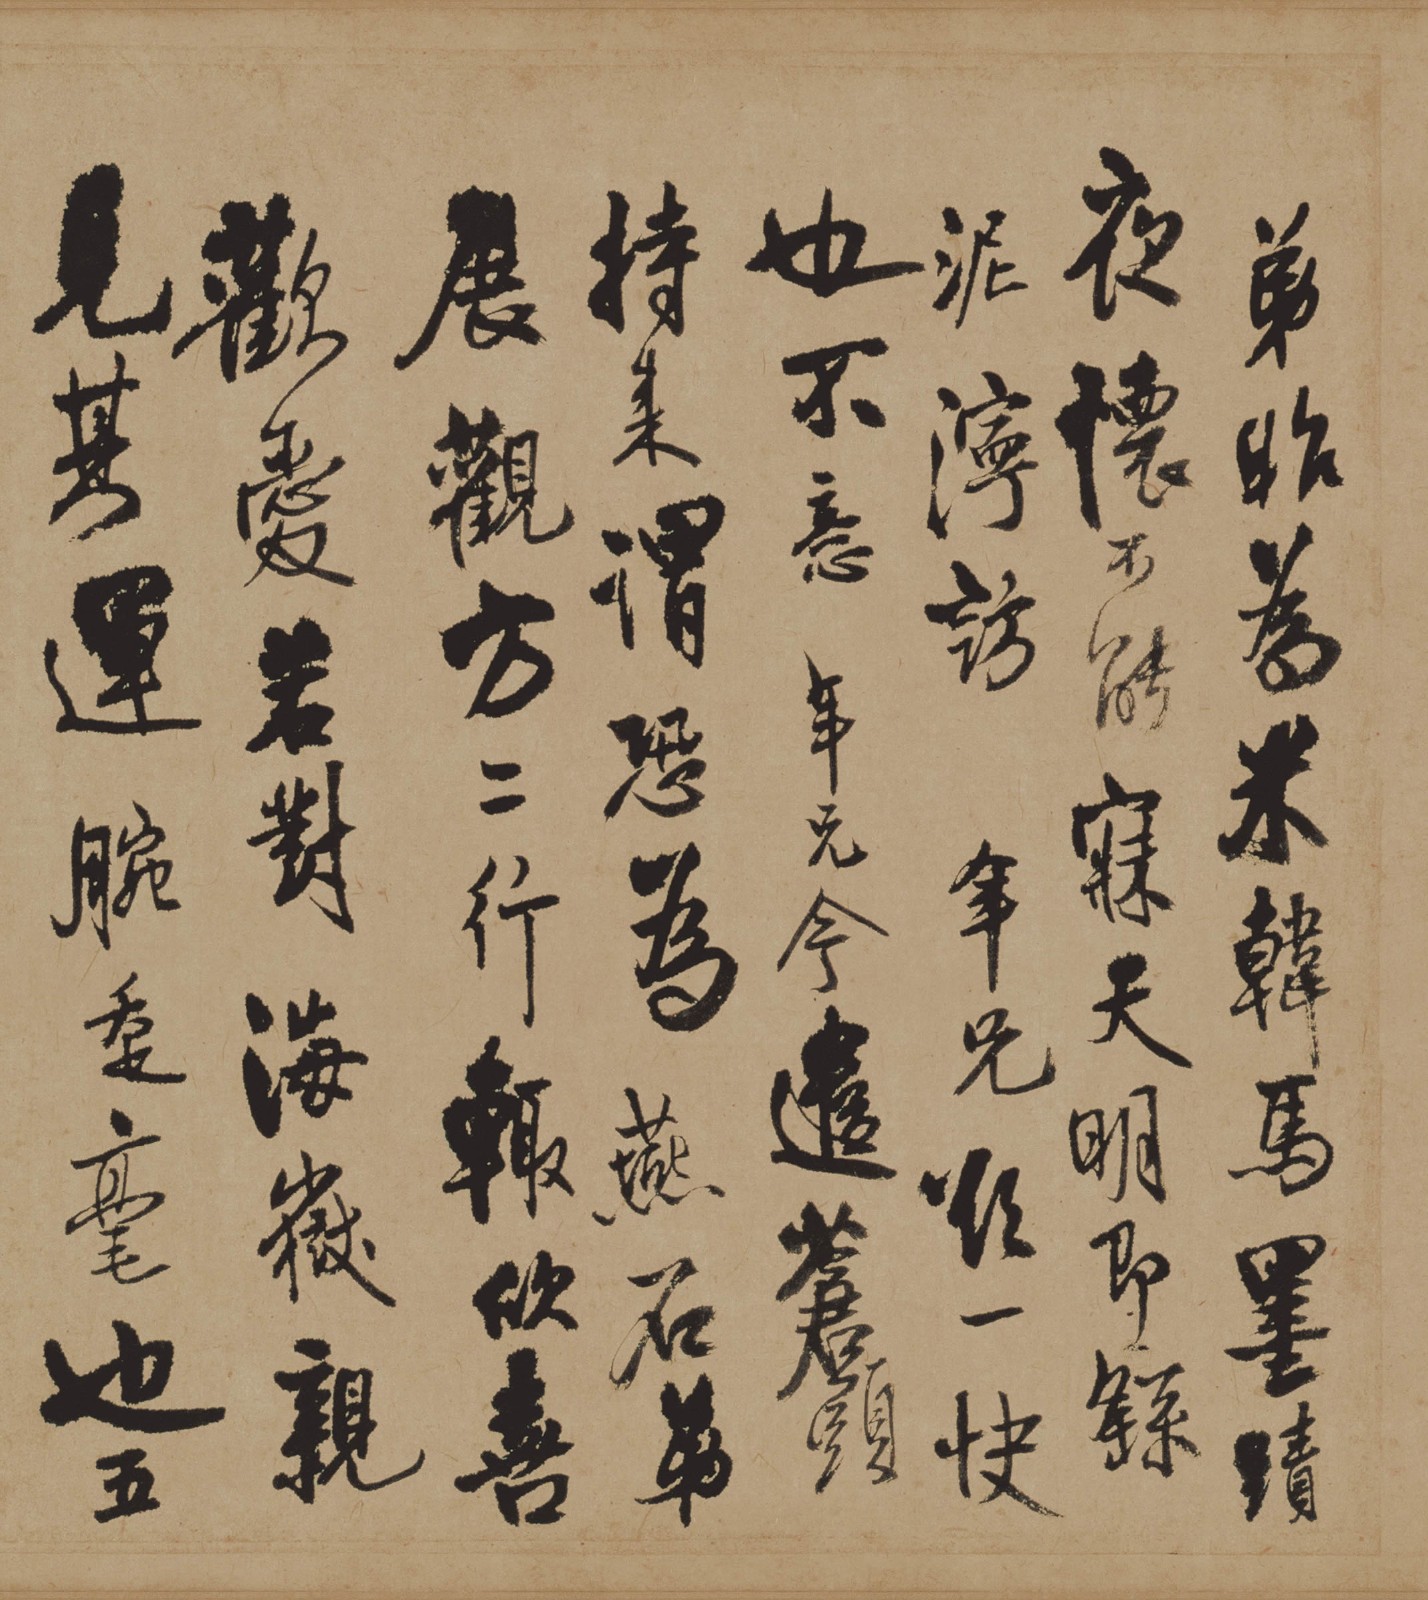 弟昨為米韓馬墨蹟
夜懷不能寐天明即
泥濘訪年兄 一快
也不意年兄今遣蒼頭
持来謂恐為燕石弟
展觀方二行輙欣喜
歡愛若對海嶽親
見其運腕垂毫也五